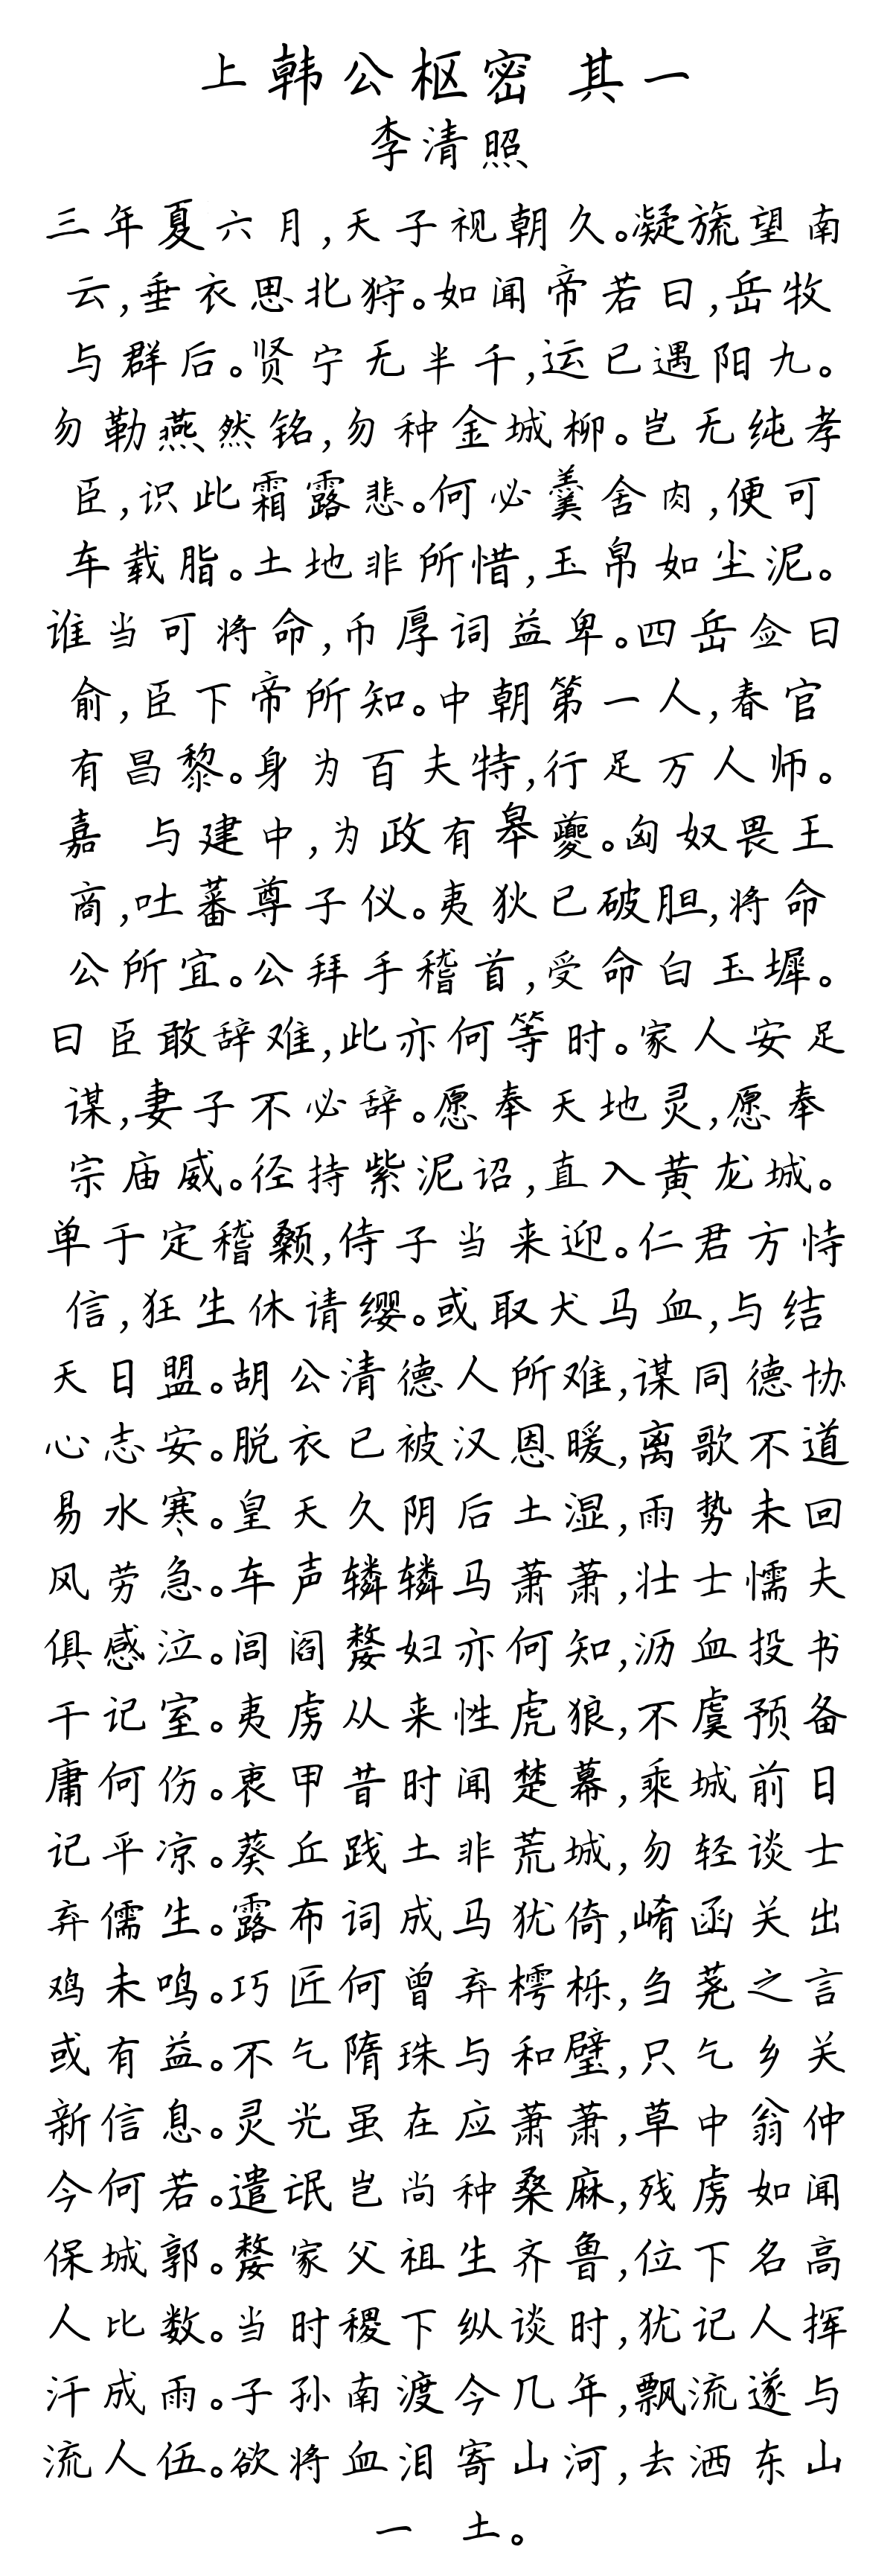 上韩公枢密 其一
李清照
三年夏六月,天子视朝久。凝旒望南
云,垂衣思北狩。如闻帝若曰,岳牧
与群后。贤宁无半千,运已遇阳九。
勿勒燕然铭,勿种金城柳。岂无纯孝
臣,识此霜露悲。何必羹舍肉,便可
车载脂。土地非所惜,玉帛如尘泥。
谁当可将命,币厚词益卑。四岳佥曰
俞,臣下帝所知。中朝第一人,春官
有昌黎。身为百夫特,行足万人师。
嘉 与建中,为政有皋夔。匈奴畏王
商,吐蕃尊子仪。夷狄已破胆,将命
公所宜。公拜手稽首,受命白玉墀。
曰臣敢辞难,此亦何等时。家人安足
谋,妻子不必辞。愿奉天地灵,愿奉
宗庙威。径持紫泥诏,直入黄龙城。
单于定稽颡,侍子当来迎。仁君方恃
信,狂生休请缨。或取犬马血,与结
天日盟。胡公清德人所难,谋同德协
心志安。脱衣已被汉恩暖,离歌不道
易水寒。皇天久阴后土湿,雨势未回
风劳急。车声辚辚马萧萧,壮士懦夫
俱感泣。闾阎嫠妇亦何知,沥血投书
干记室。夷虏从来性虎狼,不虞预备
庸何伤。衷甲昔时闻楚幕,乘城前日
记平凉。葵丘践土非荒城,勿轻谈士
弃儒生。露布词成马犹倚,崤函关出
鸡未鸣。巧匠何曾弃樗栎,刍荛之言
或有益。不乞隋珠与和璧,只乞乡关
新信息。灵光虽在应萧萧,草中翁仲
今何若。遣氓岂尚种桑麻,残虏如闻
保城郭。嫠家父祖生齐鲁,位下名高
人比数。当时稷下纵谈时,犹记人挥
汗成雨。子孙南渡今几年,飘流遂与
流人伍。欲将血泪寄山河,去洒东山
一 土。